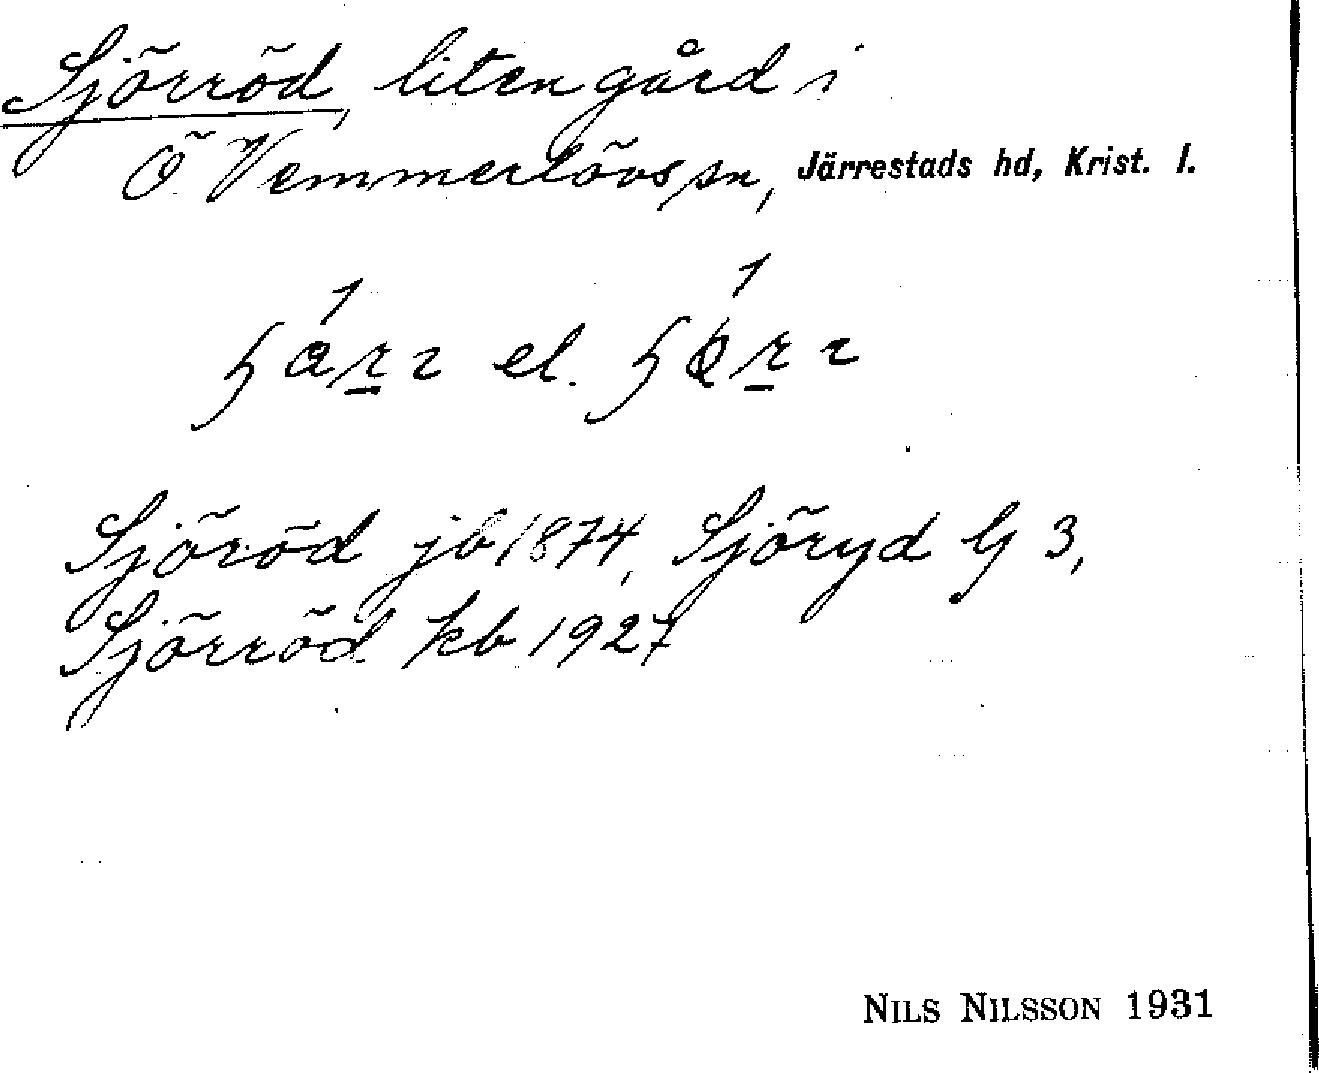 Sjörröd, liten gård i
Ö. Vemmerlövs sn, Järrestads hd, Krist. l.
el.
Sjöröd jb 1874, Sjöryd G 3,
Sjörröd kb 1927
NILS NILSSON 1931